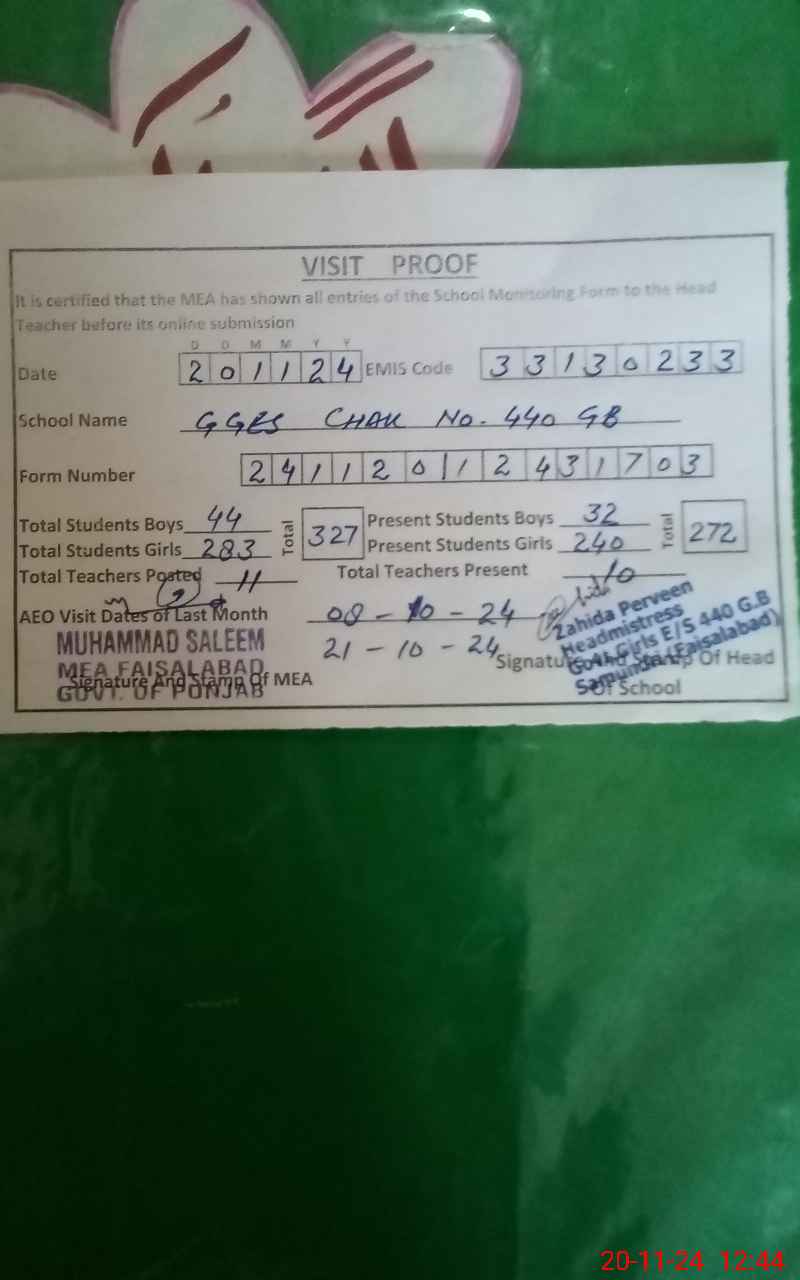 VISIT PROOF
It is certified that the MEA has shown all entries of the School Monitoring Form to the Head
Teacher before its online submission
D D M M Y Y
Date 201124 EMIS Code 33130233
School Name GGES CHAK No. 440 GB
Form Number 24112012431703
Total Students Boys 44 Total 327 Present Students Boys 32 Total 272
Total Students Girls 283 Present Students Girls 240
Total Teachers Posted 11 Total Teachers Present 10
AEO Visit Dates of Last Month 08-10-24
21-10-24
MUHAMMAD SALEEM
MEA FAISALABAD
GOVT. OF PUNJAB
Signature And Stamp Of MEA
Zahida Perveen
Headmistress
Govt. Girls E/S 440 G.B
Samundri (Faisalabad)
Signature And Stamp Of Head
Of School
20-11-24 12:44